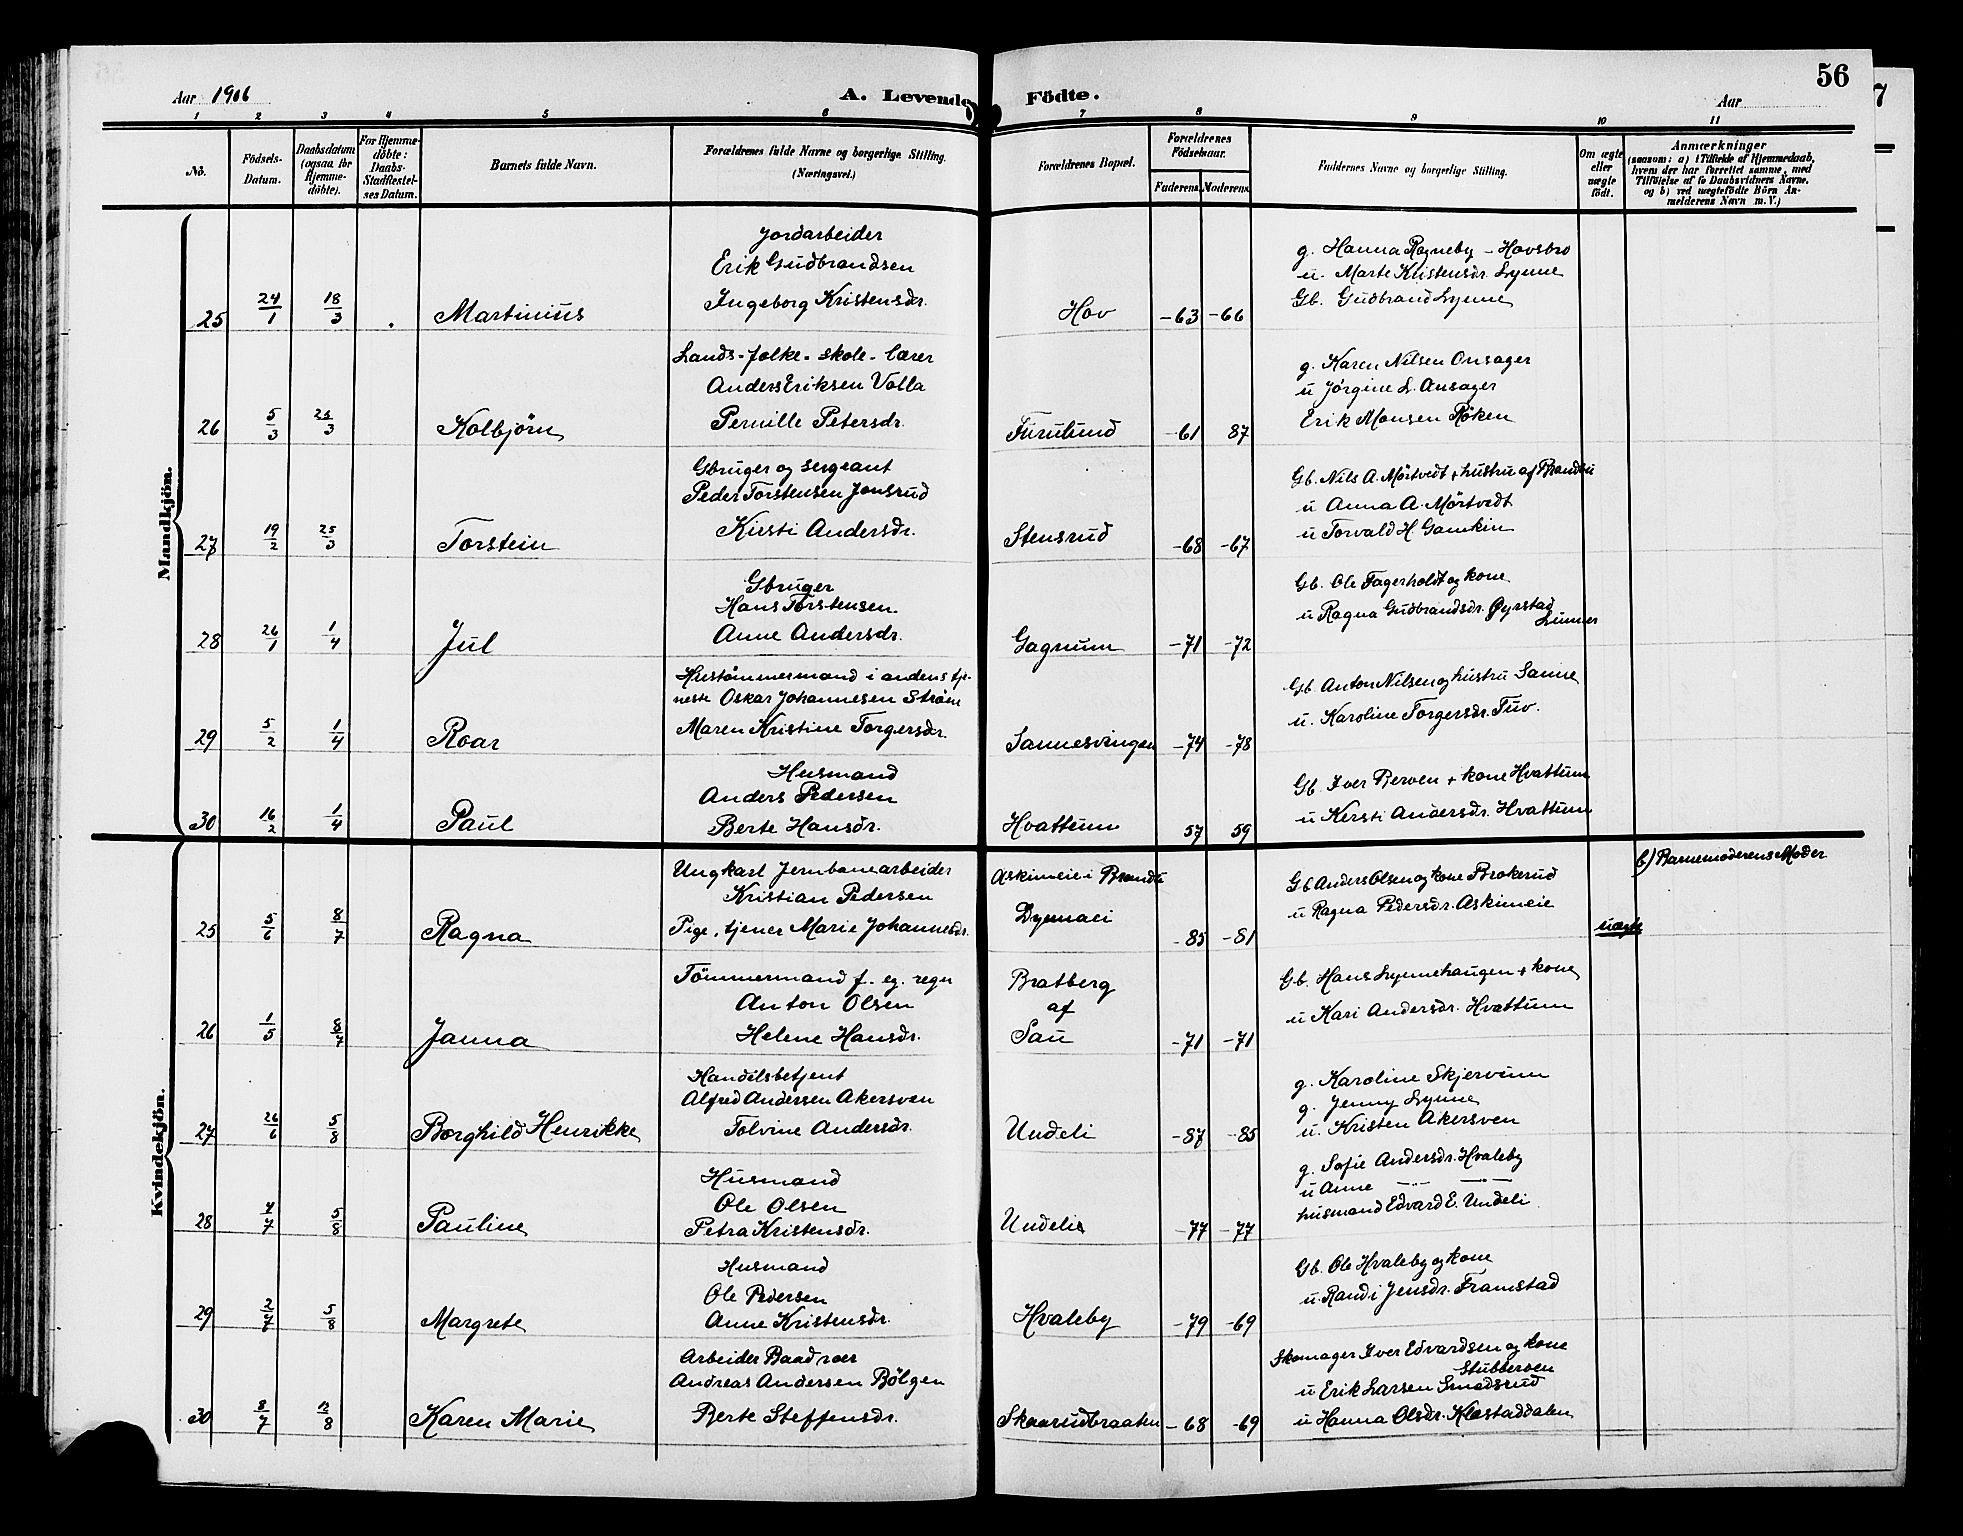 56
Aar 1906
A. Levende Födte.
Aar
1 2 3 4 5 6 7 8 9 10 11
No.
Födsels-Datum.
Daabsdatum (ogsaa for Hjemme-döbte).
For Hjemme-döbte: Daabs-Stadfæstel-ses Datum.
Barnets fulde Navn.
Forældrenes fulde Navne og borgerlige Stilling. (Næringsvei.)
Forældrenes Bopæl.
Forældrenes Födselsaar.
Faderens. Moderens.
Faddernes Navne og borgerlige Stilling.
Om ægte eller uægte födt.
Anmærkninger
(saasom: a) i Tilfælde af Hjemmedaab,
hvem der har forrettet samme, med
Tilföielse af to Daabsvidners Navne,
og b) ved uægtefödte Börn An-
melderens Navn m. V.)
Mandkjön.
Jordarbeider
Erik Gudbrandsen
Ingeborg Kristensdr.
25 24/1 18/3 Martinius
Hov -63 -66
g. Hanna Rogneby - Hovsbro
u. Marte Kristensdr. Lynne
Gb. Gudbrand Lynne
Lands-folke-skole-lærer
Anders Eriksen Volla
Pernille Petersdr.
26 5/3 25/3 Kolbjörn
Furulund -61 87
g. Karen Nilsen Onsager
u Jørgine L. Ansager
Erik Monsen Röken
Gbruger og sergeant
Peder Torstensen Jonsrud
Kirsti Andersdr.
27 19/2 25/3 Torstein
Stensrud -68 -67
Gb. Nils A. Mörtvedt + hustru af Brandbu
u Anna A. Mörtvedt
u Torvald H. Gamkin
Gbruger
Hans Torstensen
Anne Andersdr.
28 26/1 1/4 Jul
Gagnum -71 -72
Gb. Ole Fagerholdt og kone
u Ragna Gudbrandsdr. Øyrstad
Lunner
Hustömmermand i andens tje-
neste Oskar Johannesen Ström
Maren Kristine Torgersdr.
29 5/2 1/4 Roar
Sannesvingen -74 -78
Gb. Anton Nilsen og hustru Sanne
u. Karoline Torgersdr. Tuv.
Husmand
Anders Pedersen
Berte Hansdr.
30 16/2 1/4 Paul
Hvattum 57 59
Gb. Iver Berven + kone Hvattum
u Kersti Andersdr. Hvattum
Kvindekjön.
Ungkarl Jernbanearbeider
Kristian Pedersen
Pige, tjener Marie Johannesdr.
25 5/6 8/7 Ragna
Askimeie i Brandbu
Lynnaei -85 -81
Gb Anders Olsen og kone Brokerud
u Ragna Pedersdr. Askimeie
uægte
b) Barnemoderens Moder
Tömmermand f. eg. regn
Anton Olsen
Helene Hansdr.
26 1/5 8/7 Janna
Bratberg
af
Sau -71 -71
Gb. Hans Lynnehaugen + kone
u Kari Andersdr. Hvattum
Handelsbetjent
Alfred Andersen Akersven
Tolvine Andersdr.
27 26/6 5/8 Borghild Henrikke
Undeli -87 -85
g. Karoline Skjervum
g. Jenny Lynne
u. Kristen Akersven
Husmand
Ole Olsen
Petra Kristensdr.
28 4/7 5/8 Pauline
Undelie -77 -77
g. Sofie Andersdr. Hvaleby
u Anne —"— —"—
husmand Edvard E. Undeli
Husmand
Ole Pedersen
Anne Kristensdr.
29 5/8 Margrete
Hvaleby -79 -69
Gb. Ole Hvaleby og kone
u. Randi Jensdr. Framstad
Arbeider Baadroer
Andreas Andersen Bölgen
Berte Steffensdr.
30 8/7 12/8 Karen Marie
Skaarudbraaten -68 -69
Skomager Iver Edvardsen og kone
Stubberven
u Erik Larsen Smedsrud
u Hanna Olsdr. Klæstaddalen